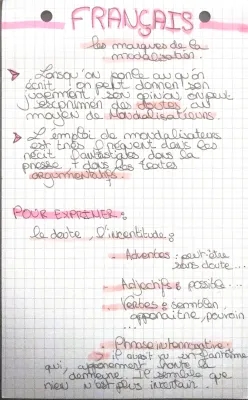 FRANÇAIS
les marques de la
modalisation.
Lorsqu'on parle ou qu'on
écrit, on peut donner son
jugement, son opinion, on peut
exprimer des doutes, au
moyen de Modalisateurs.
L'emploi de modalisateurs
est très fréquent dans les
récit fantastiques, dans la
presse, + dans les textes
argumentatifs.
POUR EXPRIMER :
le doute, l'incertitude :
Adverbes : peut-être
sans doute...
Adjectifs : possible...
Verbes : sembler,
apparaître, pouvoir
...
Phrase interrogative :
il avait vu un fantôme
qui, apparemment hante la
demeure. Il semble que
rien n'est plus